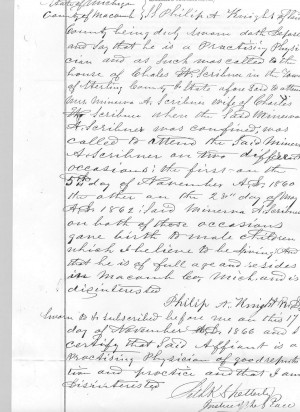 State of Michigan
County of Macomb } SS Philip A. Knight of the
County being duly sworn doth depose
and say that he is a Practising Physi
cian and as such was called to the
house of Charles H. Scribner in the Town
of Sterling County & State aforesaid to attend
Mrs Minerva A. Scribner wife of Charles
H. Scribner where the said Minerva
A. Scribner was confined, was
called to attend the said Minerva
A. Scribner on two different
occasions; the first on the
5th day of November A.D. 1860
the other on the 23d day of May
A.D. 1862; Said Minerva A. Scribner
on both of those occasions
gave birth to male children
which I believe to be living. And
that he is of full age and resides
in Macomb Co, Mich. and is
disinterested
Philip A. Knight
Sworn to & subscribed before me on this 17
day of November A.D. 1866 and I
certify that Said Affiant is a
Practising Physician of good reputa
tion and practice and that I am
disinterested
Justice of the Peace